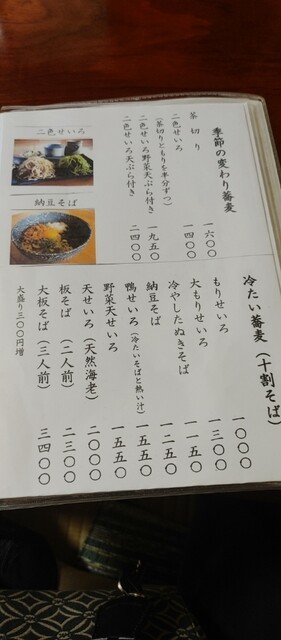 季節の変わり蕎麦
茶切り 一六〇〇
二色せいろ 一四〇〇
(茶切りともりを半分ずつ)
二色せいろ野菜天ぷら付き 一九五〇
二色せいろ天ぷら付き 二四〇〇
二色せいろ
納豆そば
冷たい蕎麦(十割そば)
もりせいろ 一〇〇〇
大もりせいろ 一三〇〇
冷やしたぬきそば 一一五〇
納豆そば 一二五〇
鴨せいろ(冷たいそばと熱い汁) 一五五〇
野菜天せいろ 一五五〇
天せいろ(天然海老) 二〇〇〇
板そば(二人前) 二三〇〇
大板そば(三人前) 三四〇〇
大盛り三〇〇円増